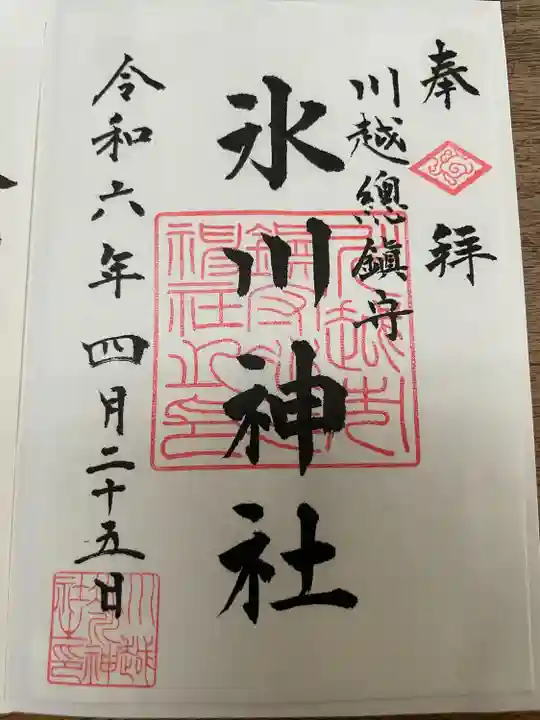 奉拜
川越總鎮守
氷川神社
令和六年四月二十五日